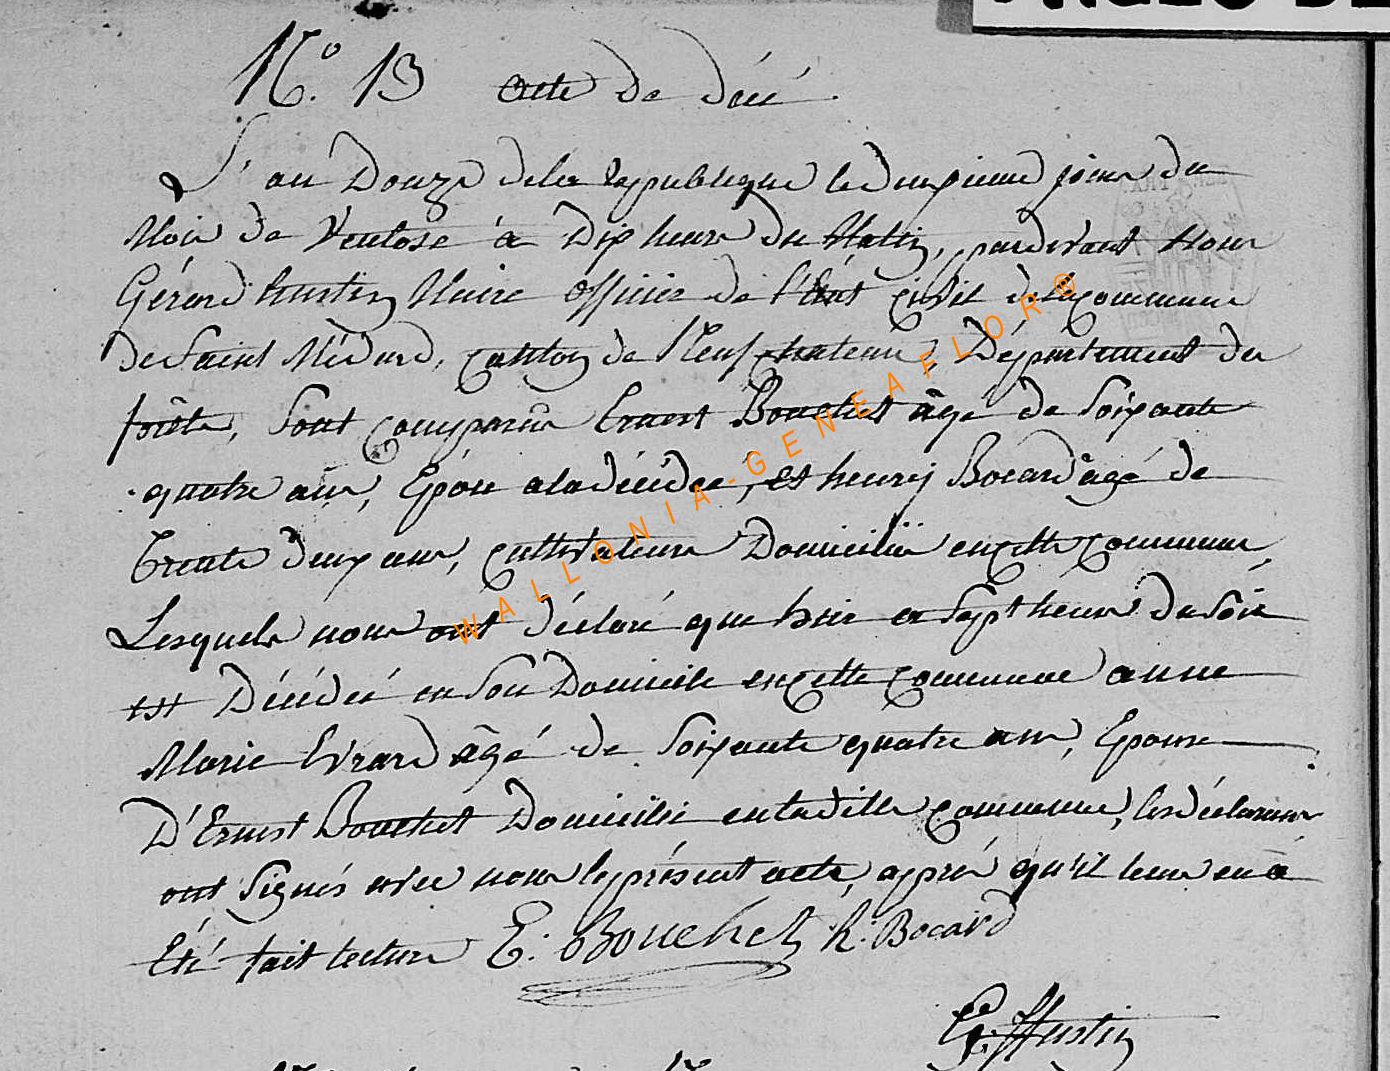 N.° 13 acte de décé
L'an Douze de la republique le deuxieme jour du
Mois de Ventose à Dix heure du Matin, pardevant Nous
Gérard hustin Maire officier de l'état civil de la commune
de Saint Médard, canton de Neufchateau, Département de
forêts, Sont comparus Ernest Bouchet âgé de Soixante
quatre ans, Epou a la décédée, et henry Bocard âgé de
trente deux ans, cultivateurs Domiciliés en cette commune,
Lesquels nous ont déclaré que hier a Sept heures du Soir
est Décédée en Son Domicile en cette commune anne
Marie Evrard âgé de Soixante quatre ans, Epouse
D'Ernest Bouchet Domicilié en ladite commune, les déclarans
ont Signés avec nous le présent acte, après qu'il leur en a
été fait lecture E: Bouchet h: Bocard
G: Hustin
WALLONIA-GENEAFLOR®